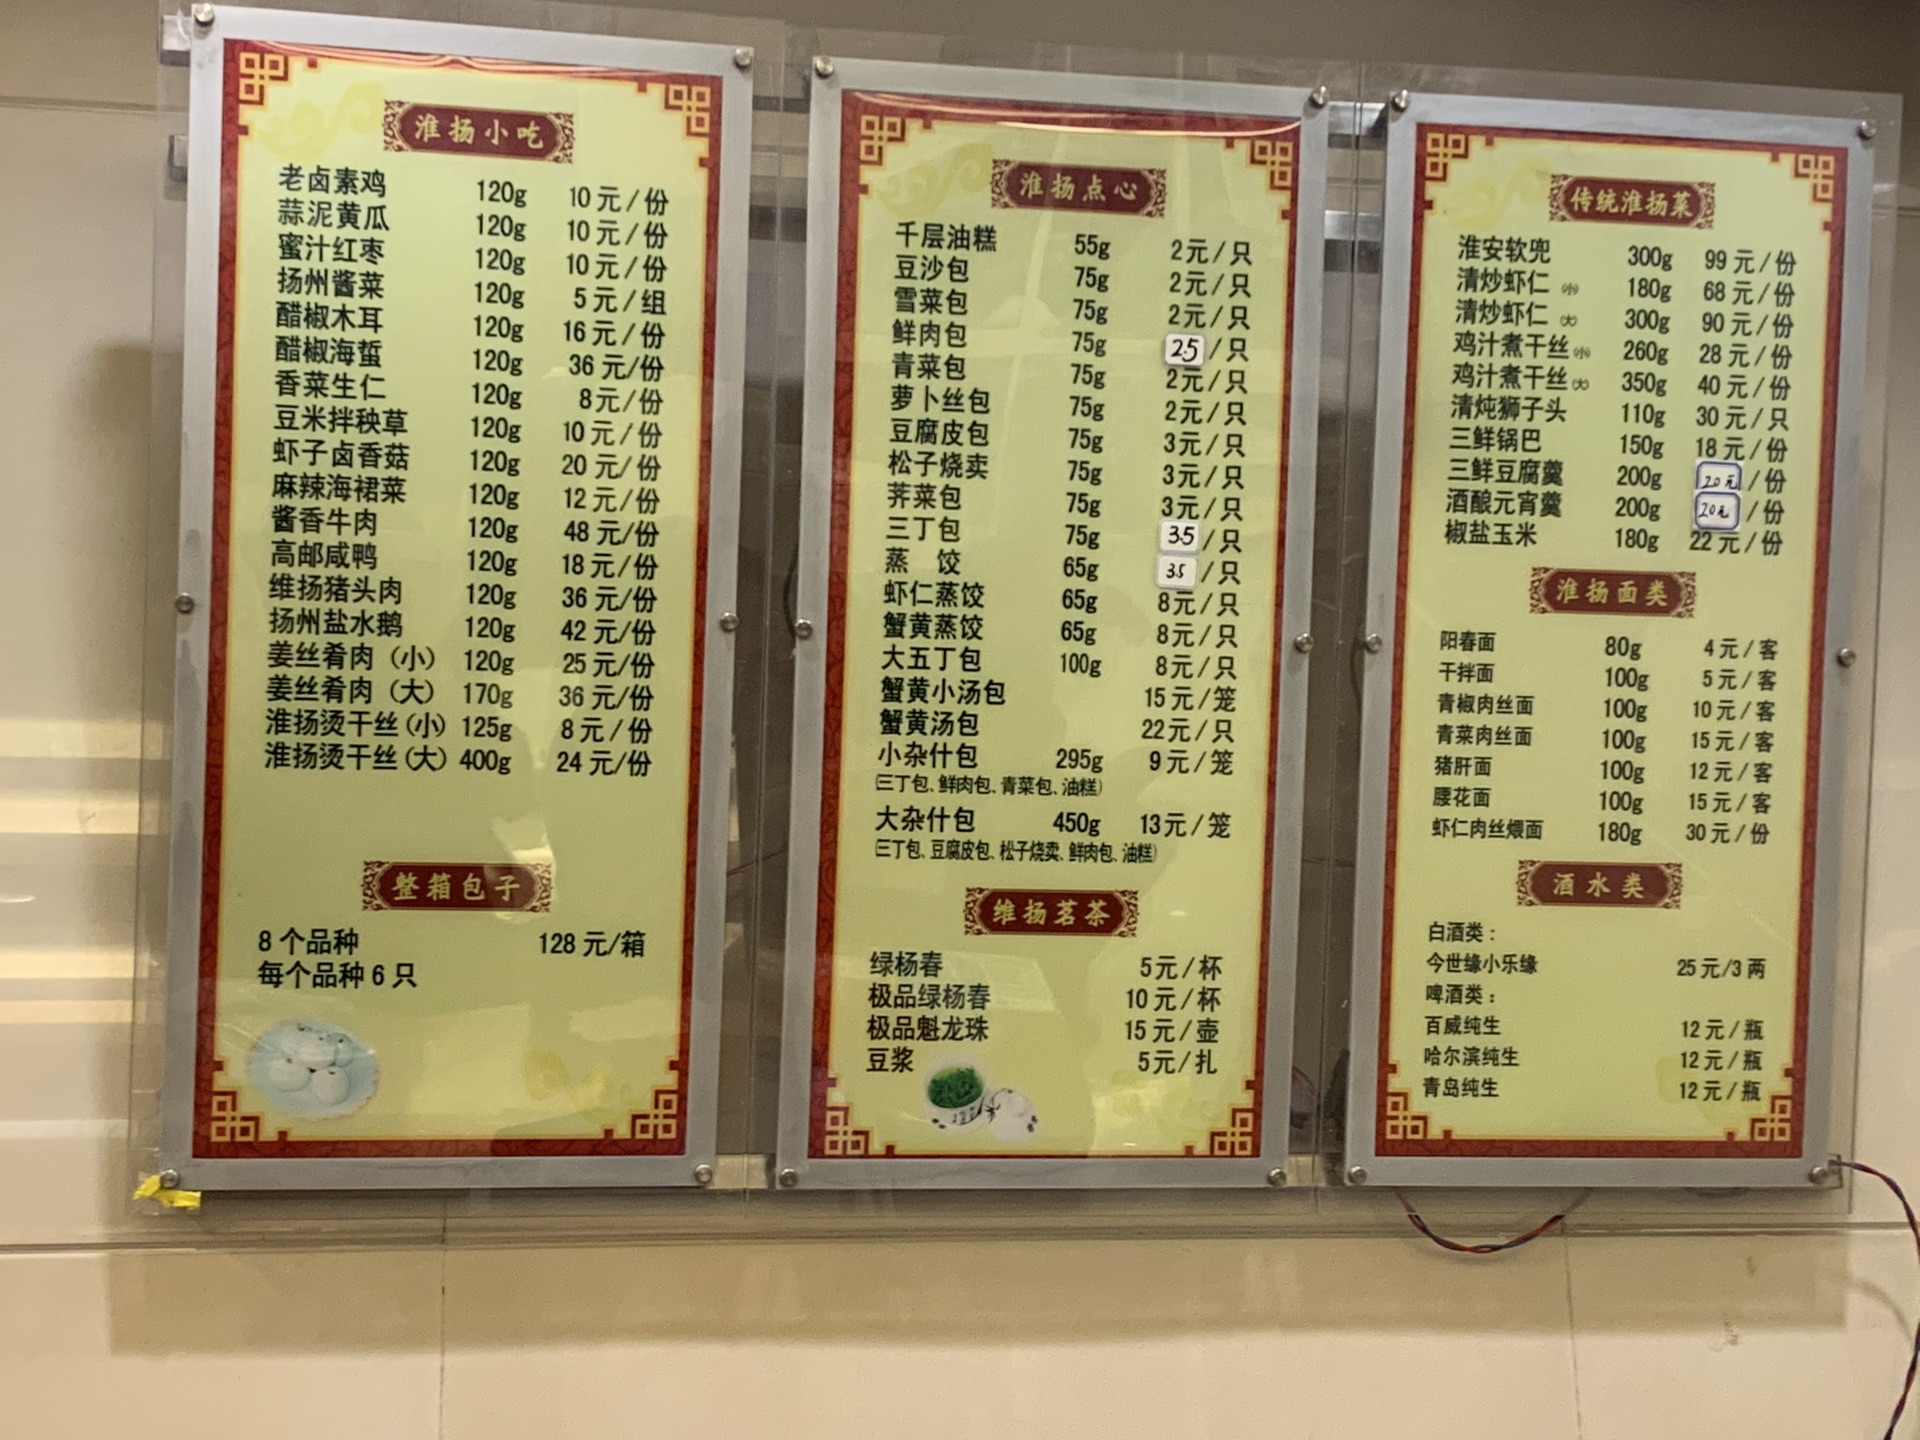 淮扬小吃
老卤素鸡 120g 10元/份
蒜泥黄瓜 120g 10元/份
蜜汁红枣 120g 10元/份
扬州酱菜 120g 5元/组
醋椒木耳 120g 16元/份
醋椒海蜇 120g 36元/份
香菜生仁 120g 8元/份
豆米拌秧草 120g 10元/份
虾子卤香菇 120g 20元/份
麻辣海裙菜 120g 12元/份
酱香牛肉 120g 48元/份
高邮咸鸭 120g 18元/份
维扬猪头肉 120g 36元/份
扬州盐水鹅 120g 42元/份
姜丝肴肉（小） 120g 25元/份
姜丝肴肉（大） 170g 36元/份
淮扬烫干丝(小) 125g 8元/份
淮扬烫干丝(大) 400g 24元/份
整箱包子
8个品种 128元/箱
每个品种6只
淮扬点心
千层油糕 55g 2元/只
豆沙包 75g 2元/只
雪菜包 75g 2元/只
鲜肉包 75g 2.5/只
青菜包 75g 2元/只
萝卜丝包 75g 2元/只
豆腐皮包 75g 3元/只
松子烧卖 75g 3元/只
荠菜包 75g 3元/只
三丁包 75g 3.5/只
蒸 饺 65g 3.5/只
虾仁蒸饺 65g 8元/只
蟹黄蒸饺 65g 8元/只
大五丁包 100g 8元/只
蟹黄小汤包 15元/笼
蟹黄汤包 22元/只
小杂什包 295g 9元/笼
(三丁包、鲜肉包、青菜包、油糕)
大杂什包 450g 13元/笼
(三丁包、豆腐皮包、松子烧卖、鲜肉包、油糕)
维扬茗茶
绿杨春 5元/杯
极品绿杨春 10元/杯
极品魁龙珠 15元/壶
豆浆 5元/扎
传统淮扬菜
淮安软兜 300g 99元/份
清炒虾仁(小) 180g 68元/份
清炒虾仁(大) 300g 90元/份
鸡汁煮干丝(小) 260g 28元/份
鸡汁煮干丝(大) 350g 40元/份
清炖狮子头 110g 30元/只
三鲜锅巴 150g 18元/份
三鲜豆腐羹 200g 20元/份
酒酿元宵羹 200g 20元/份
椒盐玉米 180g 22元/份
淮扬面类
阳春面 80g 4元/客
干拌面 100g 5元/客
青椒肉丝面 100g 10元/客
青菜肉丝面 100g 15元/客
猪肝面 100g 12元/客
腰花面 100g 15元/客
虾仁肉丝煨面 180g 30元/份
酒水类
白酒类：
今世缘小乐缘 25元/3两
啤酒类：
百威纯生 12元/瓶
哈尔滨纯生 12元/瓶
青岛纯生 12元/瓶